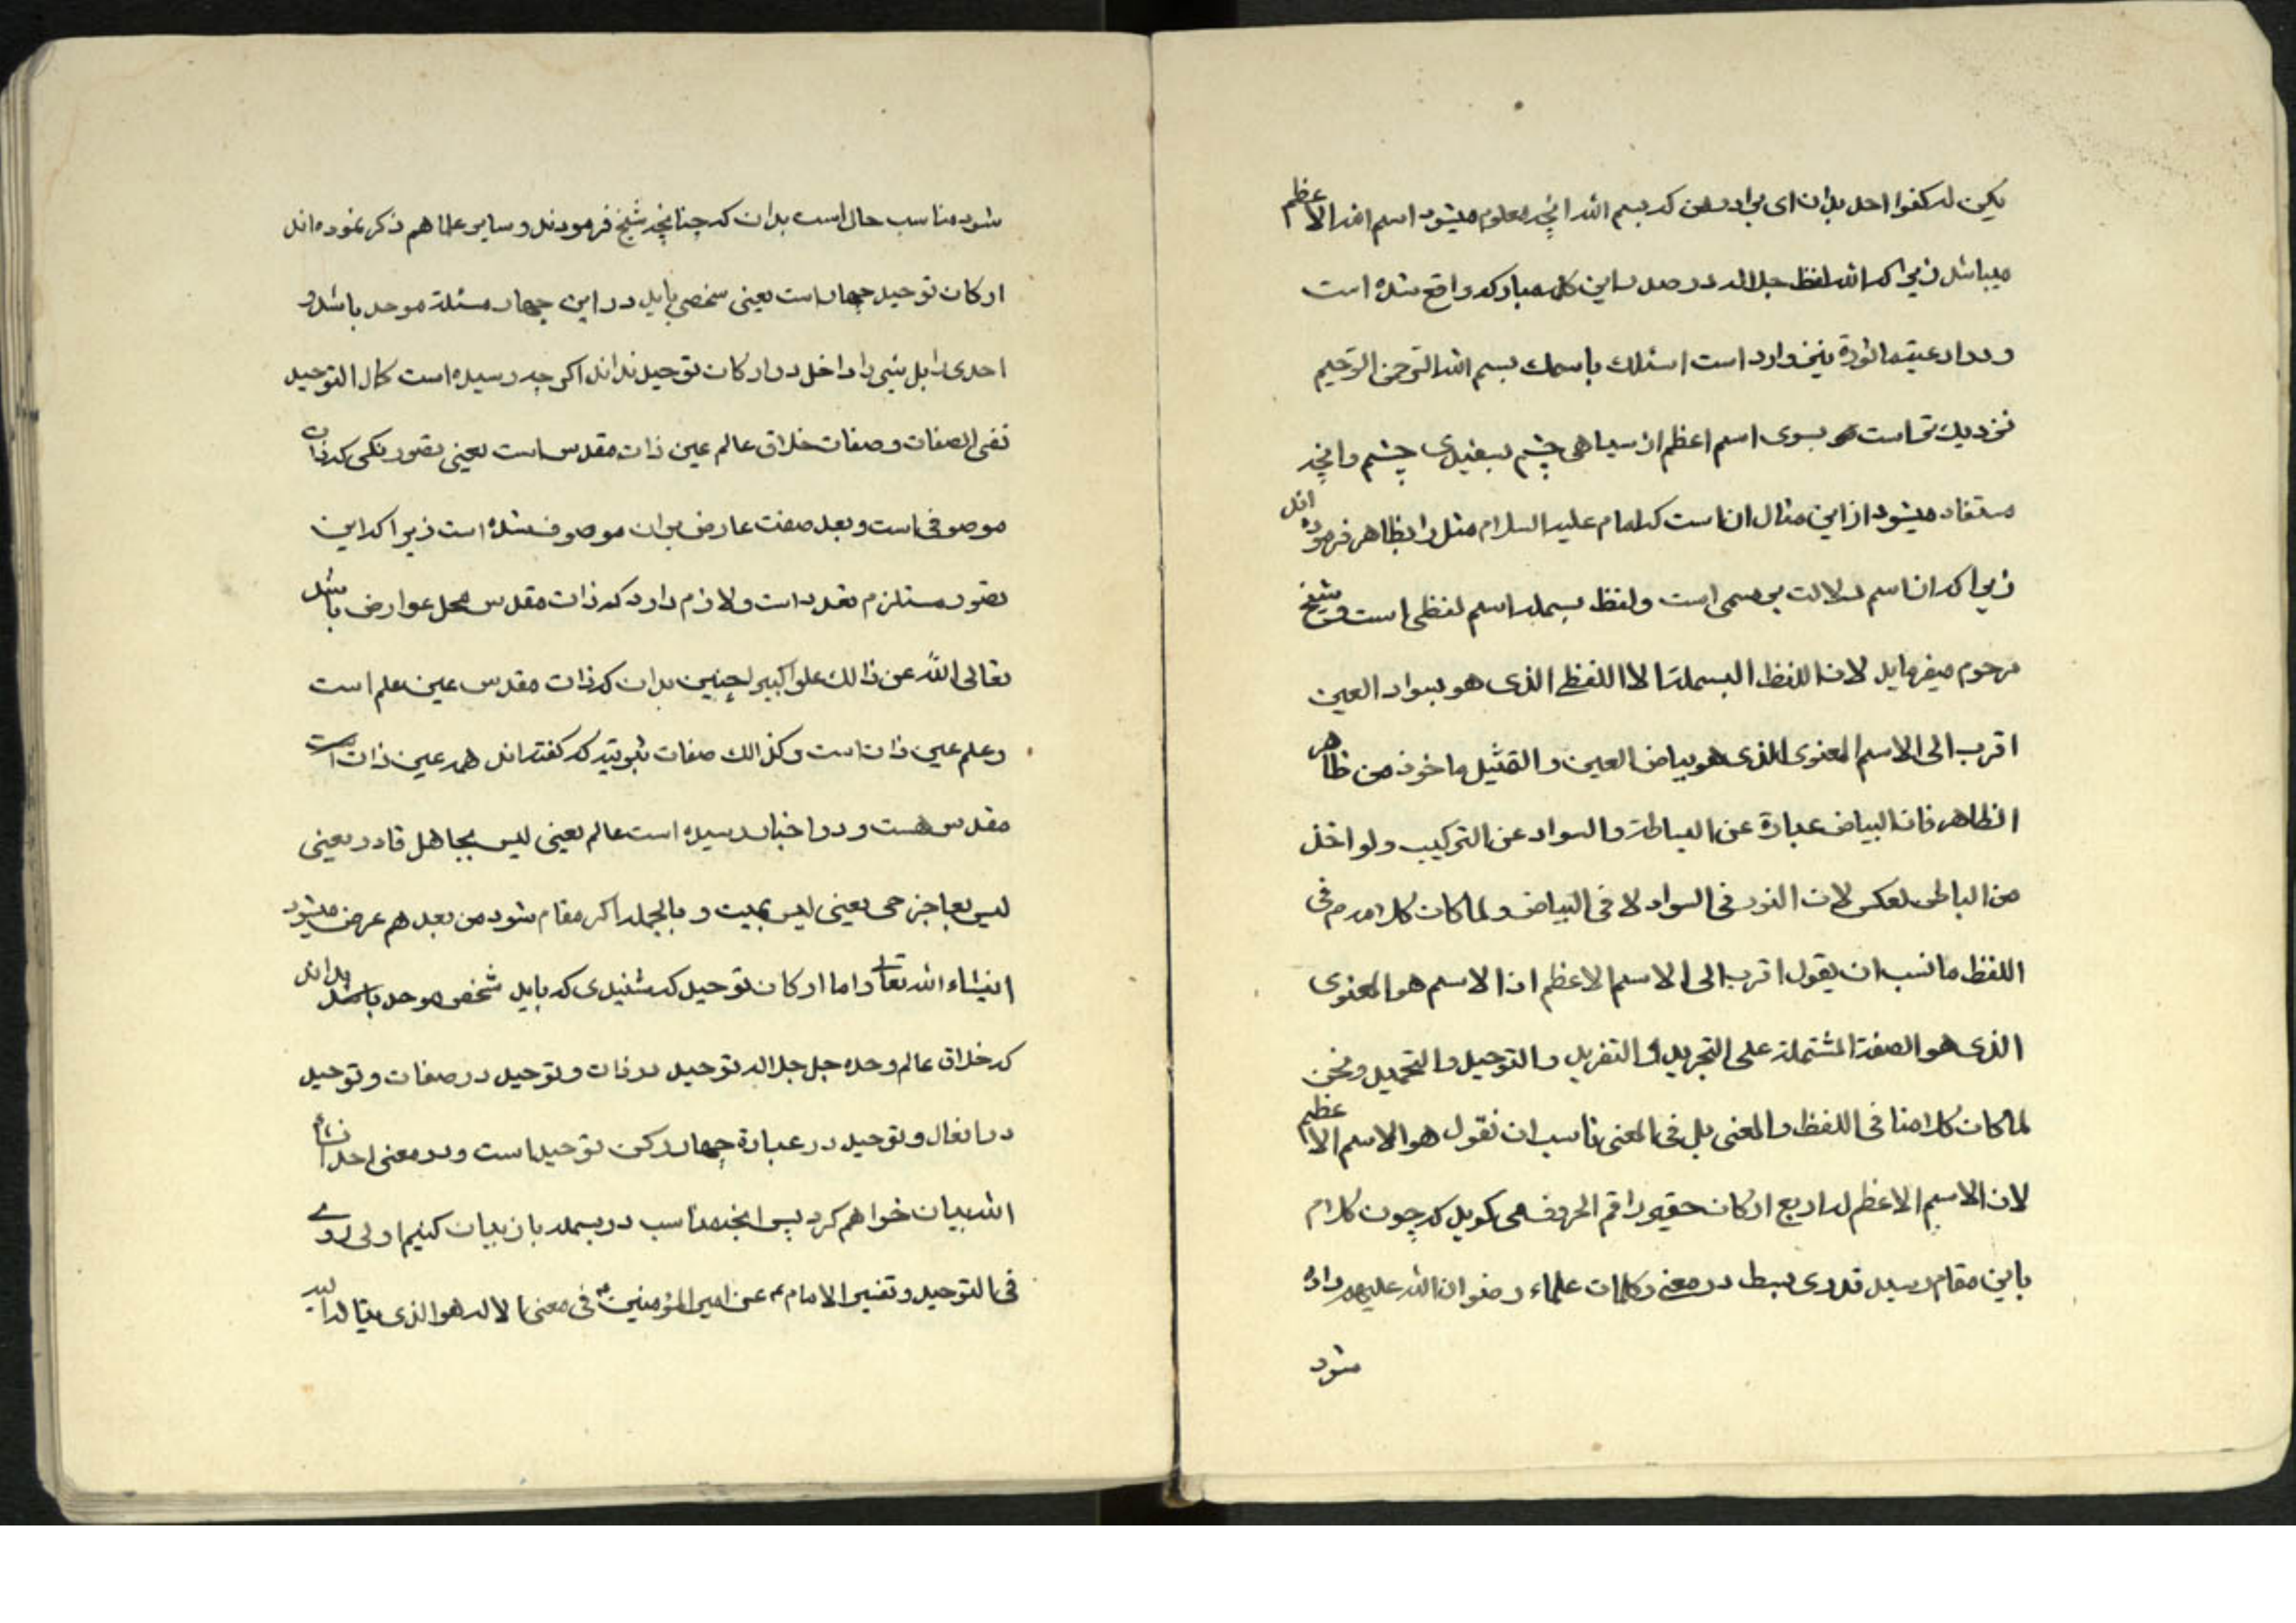 یکن له کفوا احد بدان ای برادر من که بسم الله انچه معلوم میشود اسم الله الاعظم
میباشد زیرا که الله لفظ جلاله در صدر این کلمه مبارکه واقع شده است
و در ادعیه ماثوره نیز وارد است اسئلك باسمك بسم الله الرحمن الرحیم
نزدیك تر است بسوی اسم اعظم از سیاهی چشم بسفیدی چشم وانچه
مستفاد میشود از این مثال ان است که امام علیه السلام مثل را بظاهر فرموده اند
زیرا که ان اسم دلالت بر مسمی است ولفظ بسمله اسم لفظی است و شیخ
مرحوم میفرماید لان اللفظ البسملة الا اللفظ الذی هو سواد العین
اقرب الی الاسم المعنوی الذی هو بیاض العین والتمثیل ماخوذ من ظاهر
الظاهر فان البیاض عبارة عن البساطة والسواد عن الترکیب ولو اخذ
من الباطن لعکس لان النور فی السواد لا فی البیاض ولما کان کلامهم فی
اللفظ ما نسب ان یقول اقرب الی الاسم الاعظم اذ الاسم هو المعنوی
الذی هو الصفة المشتملة علی التجرید و التفرید والتوحید والتحمید ونحن
لما کان کلامنا فی اللفظ والمعنی بل فی المعنی ناسب ان نقول هو الاسم الاعظم
لان الاسم الاعظم له اربع ارکان حقیر راقم الحروف می کوید که چون کلام
باین مقام رسید قدری بسط در معنی وکلمات علماء رضوان الله علیهم داده
شود
شود مناسب حال است بدان که چنانچه شیخ فرمودند وسایر علما هم ذکر نموده اند
ارکان توحید چهار است یعنی شخصی باید در این چهار مسئلة موحد باشد و
احدی را بل شیئی را داخل در ارکان توحید نداند اکرچه رسیده است کمال التوحید
نفی الصفات وصفات خلاق عالم عین ذات مقدس است یعنی تصور نکنی که ذات
موصوفی است وبعد صفت عارض بران موصوف شده است زیرا که این
تصور مستلزم تعدد است ولازم دارد که ذات مقدس محل عوارض باشد
تعالی الله عن ذالك علوا کبیرا چنین بدان که ذات مقدس عین علم است
وعلم عین ذات است وکذالك صفات ثبوتیه که کفته اند همه عین ذات است
مقدس هست و در اخبار رسیده است عالم یعنی لیس بجاهل قادر یعنی
لیس بعاجز حی یعنی لیس بمیت و بالجمله اکر مقام شود من بعد هم عرض میشود
انشاء الله تعالی واما ارکان توحید که شنیدی که باید شخص موحد بداند
که خلاق عالم وحده جل جلاله توحید در ذات وتوحید در صفات وتوحید
در افعال وتوحید در عبادة چهار رکن توحید است ودر معنی احد انشاء
الله بیان خواهم کرد پس انچه مناسب در بسمله باز بیان کنیم اولی روی
فی التوحید وتفسیر الامام ع عن امیر المؤمنین ع فی معنی الاله هو الذی یتاله الیه